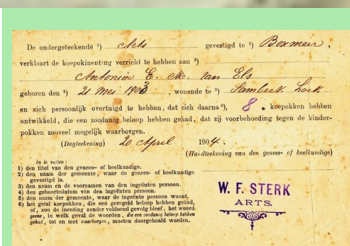 De ondergeteekende ¹) Arts gevestigd te ²) Boxmeer,
verklaart de koepokinenting verricht te hebben aan ³)
Antonius E. M. van Els
geboren den ⁴) 21 Mei 1903, wonende te ⁵) Sambeek
en zich persoonlijk overtuigd te hebben, dat zich daarna ⁶), 8 koepokken hebben
ontwikkeld, die een zoodanig beloop hebben gehad, dat zij voorbehoeding tegen de kinder-
pokken zooveel mogelijk waarborgen.
(Dagteekening) 20 April 1904.
(Handteekening van den genees- of heelkundige)
In te vullen:
1) den titel van den genees- of heelkundige.
2) den naam der gemeente, waar de genees- of heelkundige,
gevestigd is.
3) den naam en de voornamen van den ingeënten persoon.
4) den geboortedatum van den ingeënten persoon.
5) den naam der gemeente, waar de ingeënte persoon woont.
6) het getal koepokken, die een geregeld beloop hebben gehad,
of, zoo de inenting zonder voldoend gevolg bleef, het woord
geene, in welk geval de woorden, die een zoodanig beloop hebben
gehad, tot en met waarborgen, moeten doorgehaald worden.
W. F. STERK
ARTS.